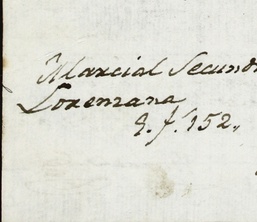 Marcial Secund
Lorenzana
E. f. 152.,